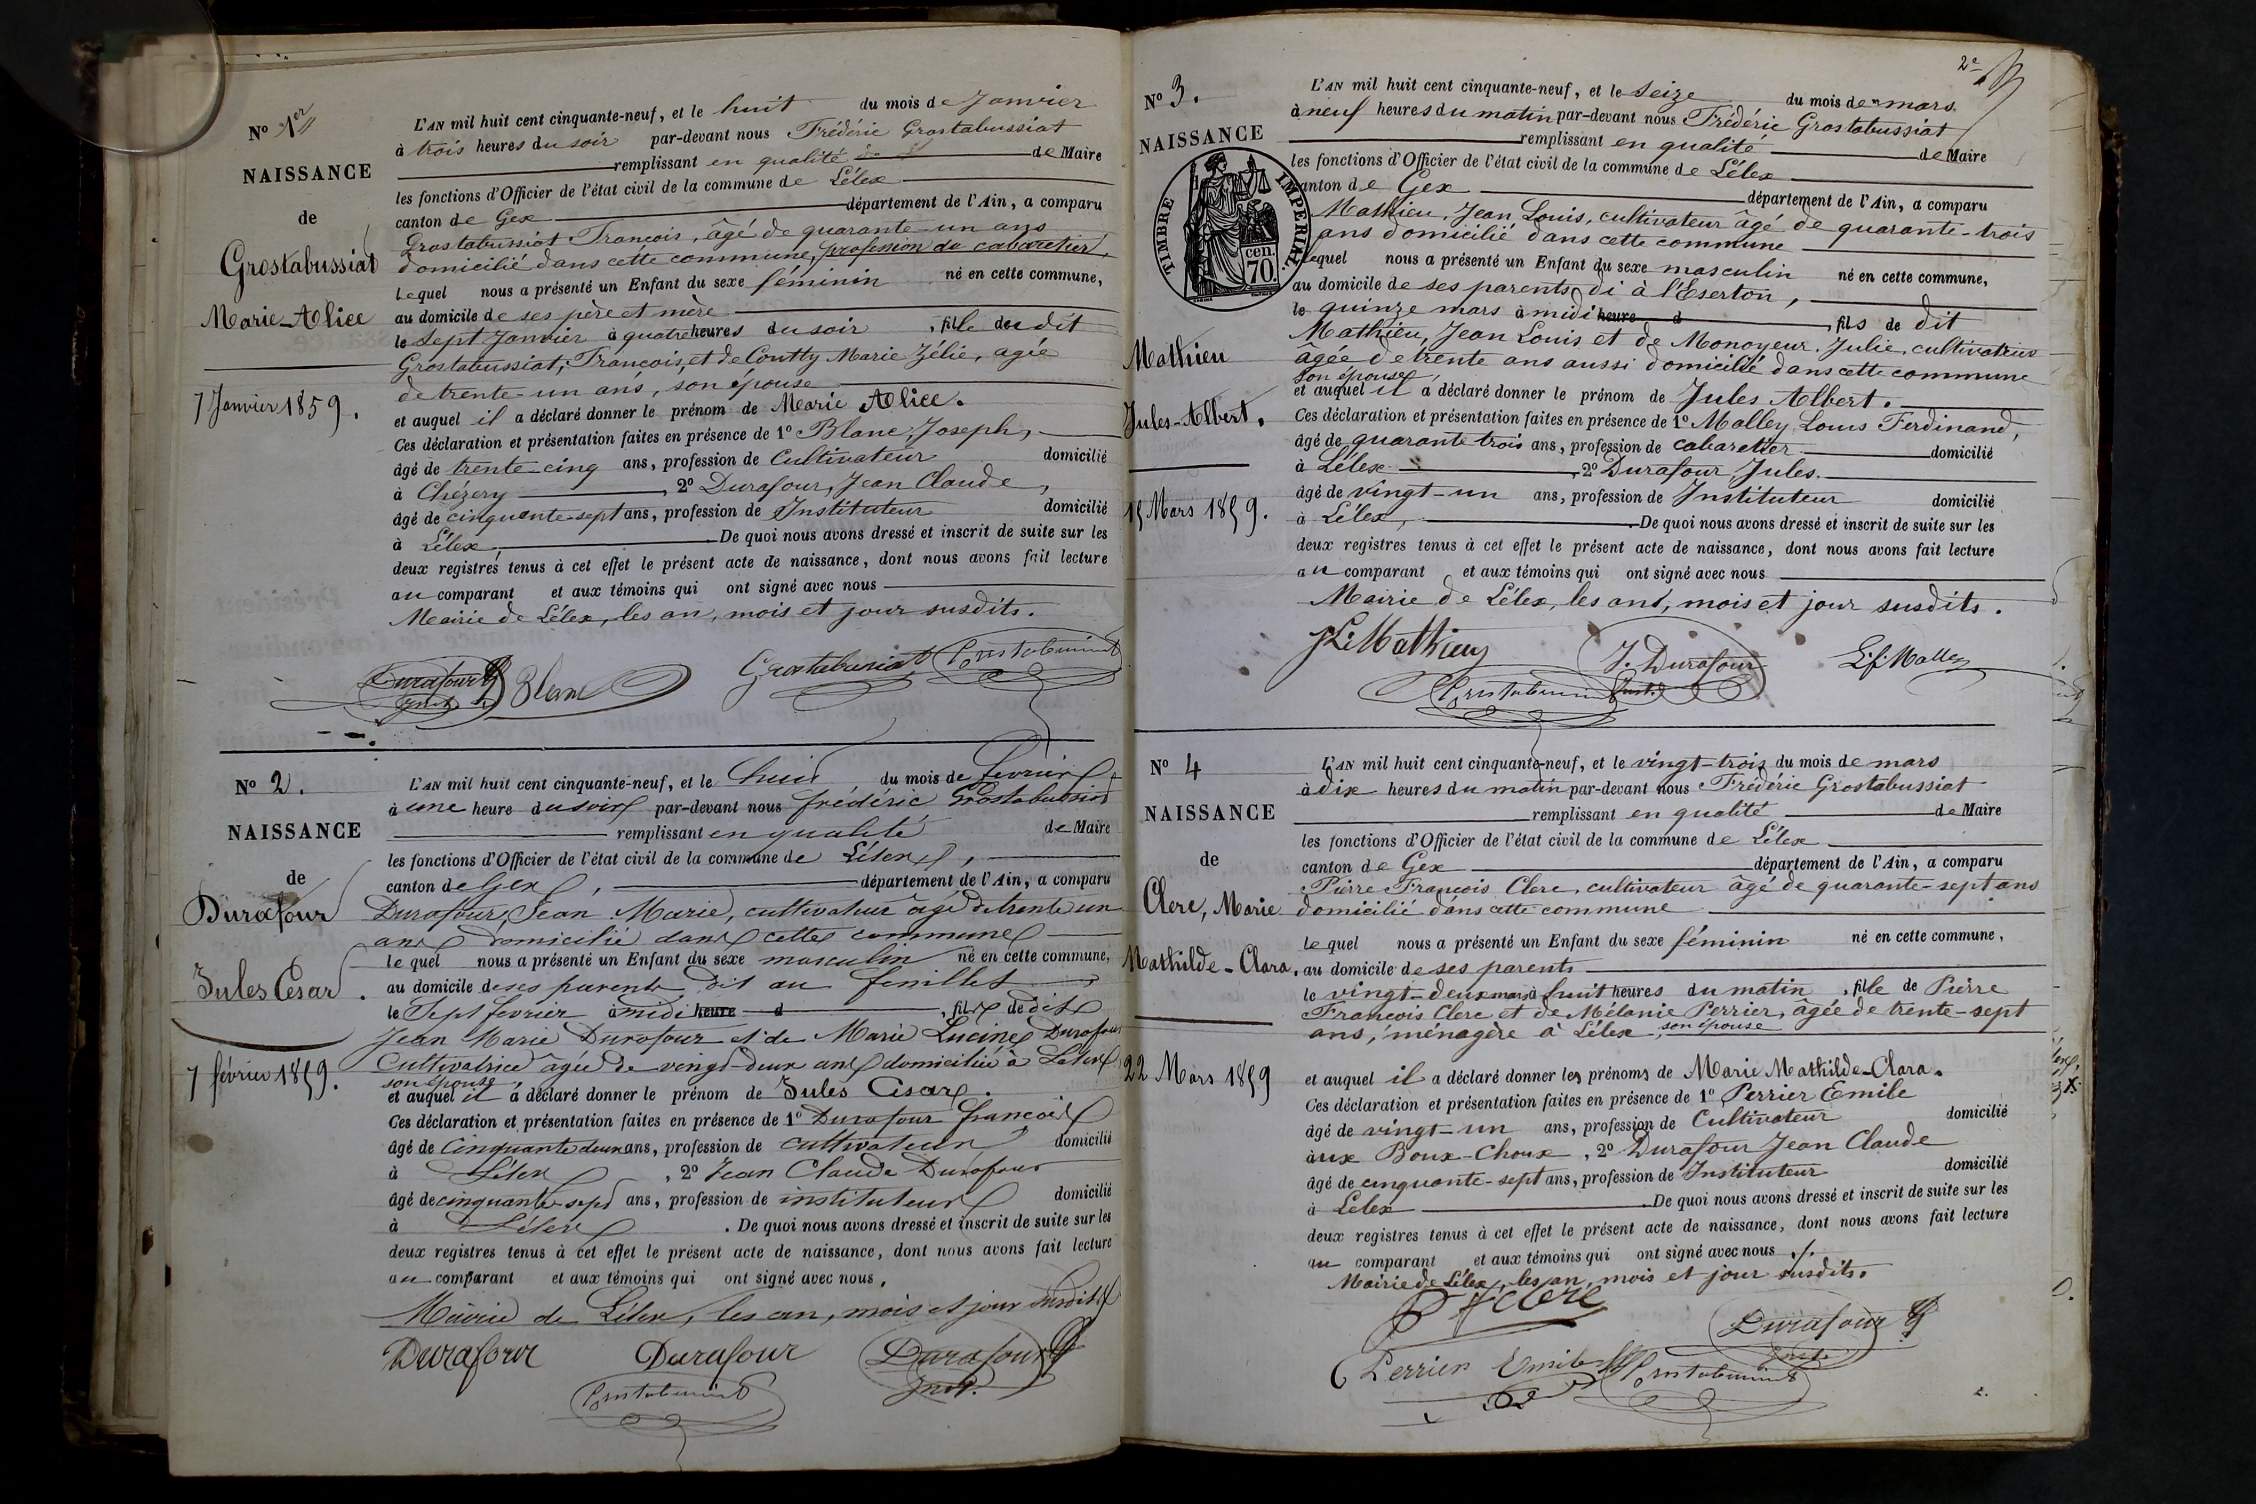 No 1er
NAISSANCE
de
Grostabussiat
Marie-Alice
7 Janvier 1859.
L'AN mil huit cent cinquante-neuf, et le huit du mois de Janvier
à trois heures du soir par-devant nous Frédéric Grostabussiat
remplissant en qualité de Maire
les fonctions d'Officier de l'état civil de la commune de Lélex
canton de Gex département de l'Ain, a comparu
Grostabussiat François, âgé de quarante-un ans
domicilié dans cette commune, profession de cabaretier,
Lequel nous a présenté un Enfant du sexe féminin né en cette commune,
au domicile de ses père et mère
le sept Janvier à quatre heures du soir, fille dudit
Grostabussiat, François, et de Coutty Marie Zélie, agée
de trente-un ans, son épouse
et auquel il a déclaré donner le prénom de Marie Alice.
Ces déclaration et présentation faites en présence de 1º Blanc, Joseph,
âgé de trente-cinq ans, profession de Cultivateur domicilié
à Chézery, 2º Durafour, Jean Claude,
âgé de cinquante-sept ans, profession de Instituteur domicilié
à Lélex, De quoi nous avons dressé et inscrit de suite sur les
deux registres tenus à cet effet le présent acte de naissance, dont nous avons fait lecture
au comparant et aux témoins qui ont signé avec nous
Mairie de Lélex, les an, mois et jour susdits.
Durafour J Blanc Grostabussiat Grostabussiat
Inst.
No 2.
NAISSANCE
de
Durafour
Jules César.
7 février 1859.
L'AN mil huit cent cinquante-neuf, et le huit du mois de février
à une heure du soir par-devant nous frédéric Grostabussiat
remplissant en qualité de Maire
les fonctions d'Officier de l'état civil de la commune de Lélex,
canton de Gex, département de l'Ain, a comparu
Durafour, Jean Marie, cultivateur âgé de trente un
ans domicilié dans cette commune
le quel nous a présenté un Enfant du sexe masculin né en cette commune,
au domicile de ses parents dit au
le Sept février à midi heure d, fils de dit
Jean Marie Durafour et de Marie Lucine Durafour
Cultivatrice âgée de vingt-deux ans domiciliée à Lélex
son épouse
et auquel il a déclaré donner le prénom de Jules César.
Ces déclaration et présentation faites en présence de 1º Durafour françois
âgé de Cinquante deux ans, profession de cultivateur domicilié
à Lélex, 2º Jean Claude Durafour
âgé de cinquante-sept ans, profession de instituteur domicilié
à Lélex. De quoi nous avons dressé et inscrit de suite sur les
deux registres tenus à cet effet le présent acte de naissance, dont nous avons fait lecture
au comparant et aux témoins qui ont signé avec nous,
Mairie de Lélex, les an, mois et jour susdits
Durafour Durafour Durafour
Grostabussiat Inst.
2e
No 3.
NAISSANCE
TIMBRE IMPERIAL
cen. 70.
Mathieu
Jules-Albert.
15 Mars 1859.
L'AN mil huit cent cinquante-neuf, et le seize du mois de mars
à neuf heures du matin par-devant nous Frédéric Grostabussiat
remplissant en qualité de Maire
les fonctions d'Officier de l'état civil de la commune de Lélex
canton de Gex département de l'Ain, a comparu
Mathieu, Jean Louis, cultivateur âgé de quarante-trois
ans domicilié dans cette commune
Lequel nous a présenté un Enfant du sexe masculin né en cette commune,
au domicile de ses parents, di à l'Eserton,
le quinze mars à midi heure d, fils de dit
Mathieu, Jean Louis et de Monoyeur Julie, cultivatrice
agée de trente ans aussi domicilié dans cette commune
son épouse,
et auquel il a déclaré donner le prénom de Jules Albert.
Ces déclaration et présentation faites en présence de 1º Malley Louis Ferdinand,
âgé de quarante trois ans, profession de cabaretier domicilié
à Lélex, 2º Durafour Jules.
âgé de vingt-un ans, profession de Instituteur domicilié
à Lélex, De quoi nous avons dressé et inscrit de suite sur les
deux registres tenus à cet effet le présent acte de naissance, dont nous avons fait lecture
au comparant et aux témoins qui ont signé avec nous
Mairie de Lélex, les ans, mois et jour susdits.
J L Mathieu J. Durafour L. f. Malley
Grostabussiat Inst.
No 4
NAISSANCE
de
Clerc, Marie
Mathilde-Clara.
22 Mars 1859
L'AN mil huit cent cinquante-neuf, et le vingt-trois du mois de mars
à dix heures du matin par-devant nous Frédéric Grostabussiat
remplissant en qualité de Maire
les fonctions d'Officier de l'état civil de la commune de Lélex
canton de Gex département de l'Ain, a comparu
Pierre François Clerc, cultivateur âgé de quarante-sept ans
domicilié dans cette commune
le quel nous a présenté un Enfant du sexe féminin né en cette commune,
au domicile de ses parents
le vingt-deux mars à huit heures du matin, fille de Pierre
François Clerc et de Mélanie Perrier, âgée de trente-sept
ans, ménagère à Lélex, son épouse
et auquel il a déclaré donner les prénoms de Marie Mathilde-Clara.
Ces déclaration et présentation faites en présence de 1º Perrier Emile
âgé de vingt-un ans, profession de Cultivateur domicilié
aux Boux-Choux, 2º Durafour Jean Claude
âgé de cinquante-sept ans, profession de Instituteur domicilié
à Lélex De quoi nous avons dressé et inscrit de suite sur les
deux registres tenus à cet effet le présent acte de naissance, dont nous avons fait lecture
au comparant et aux témoins qui ont signé avec nous ./.
Mairie de Lélex, les an, mois et jour susdits.
P F Clerc Durafour
Inst.
Perrier Emile Grostabussiat
2.